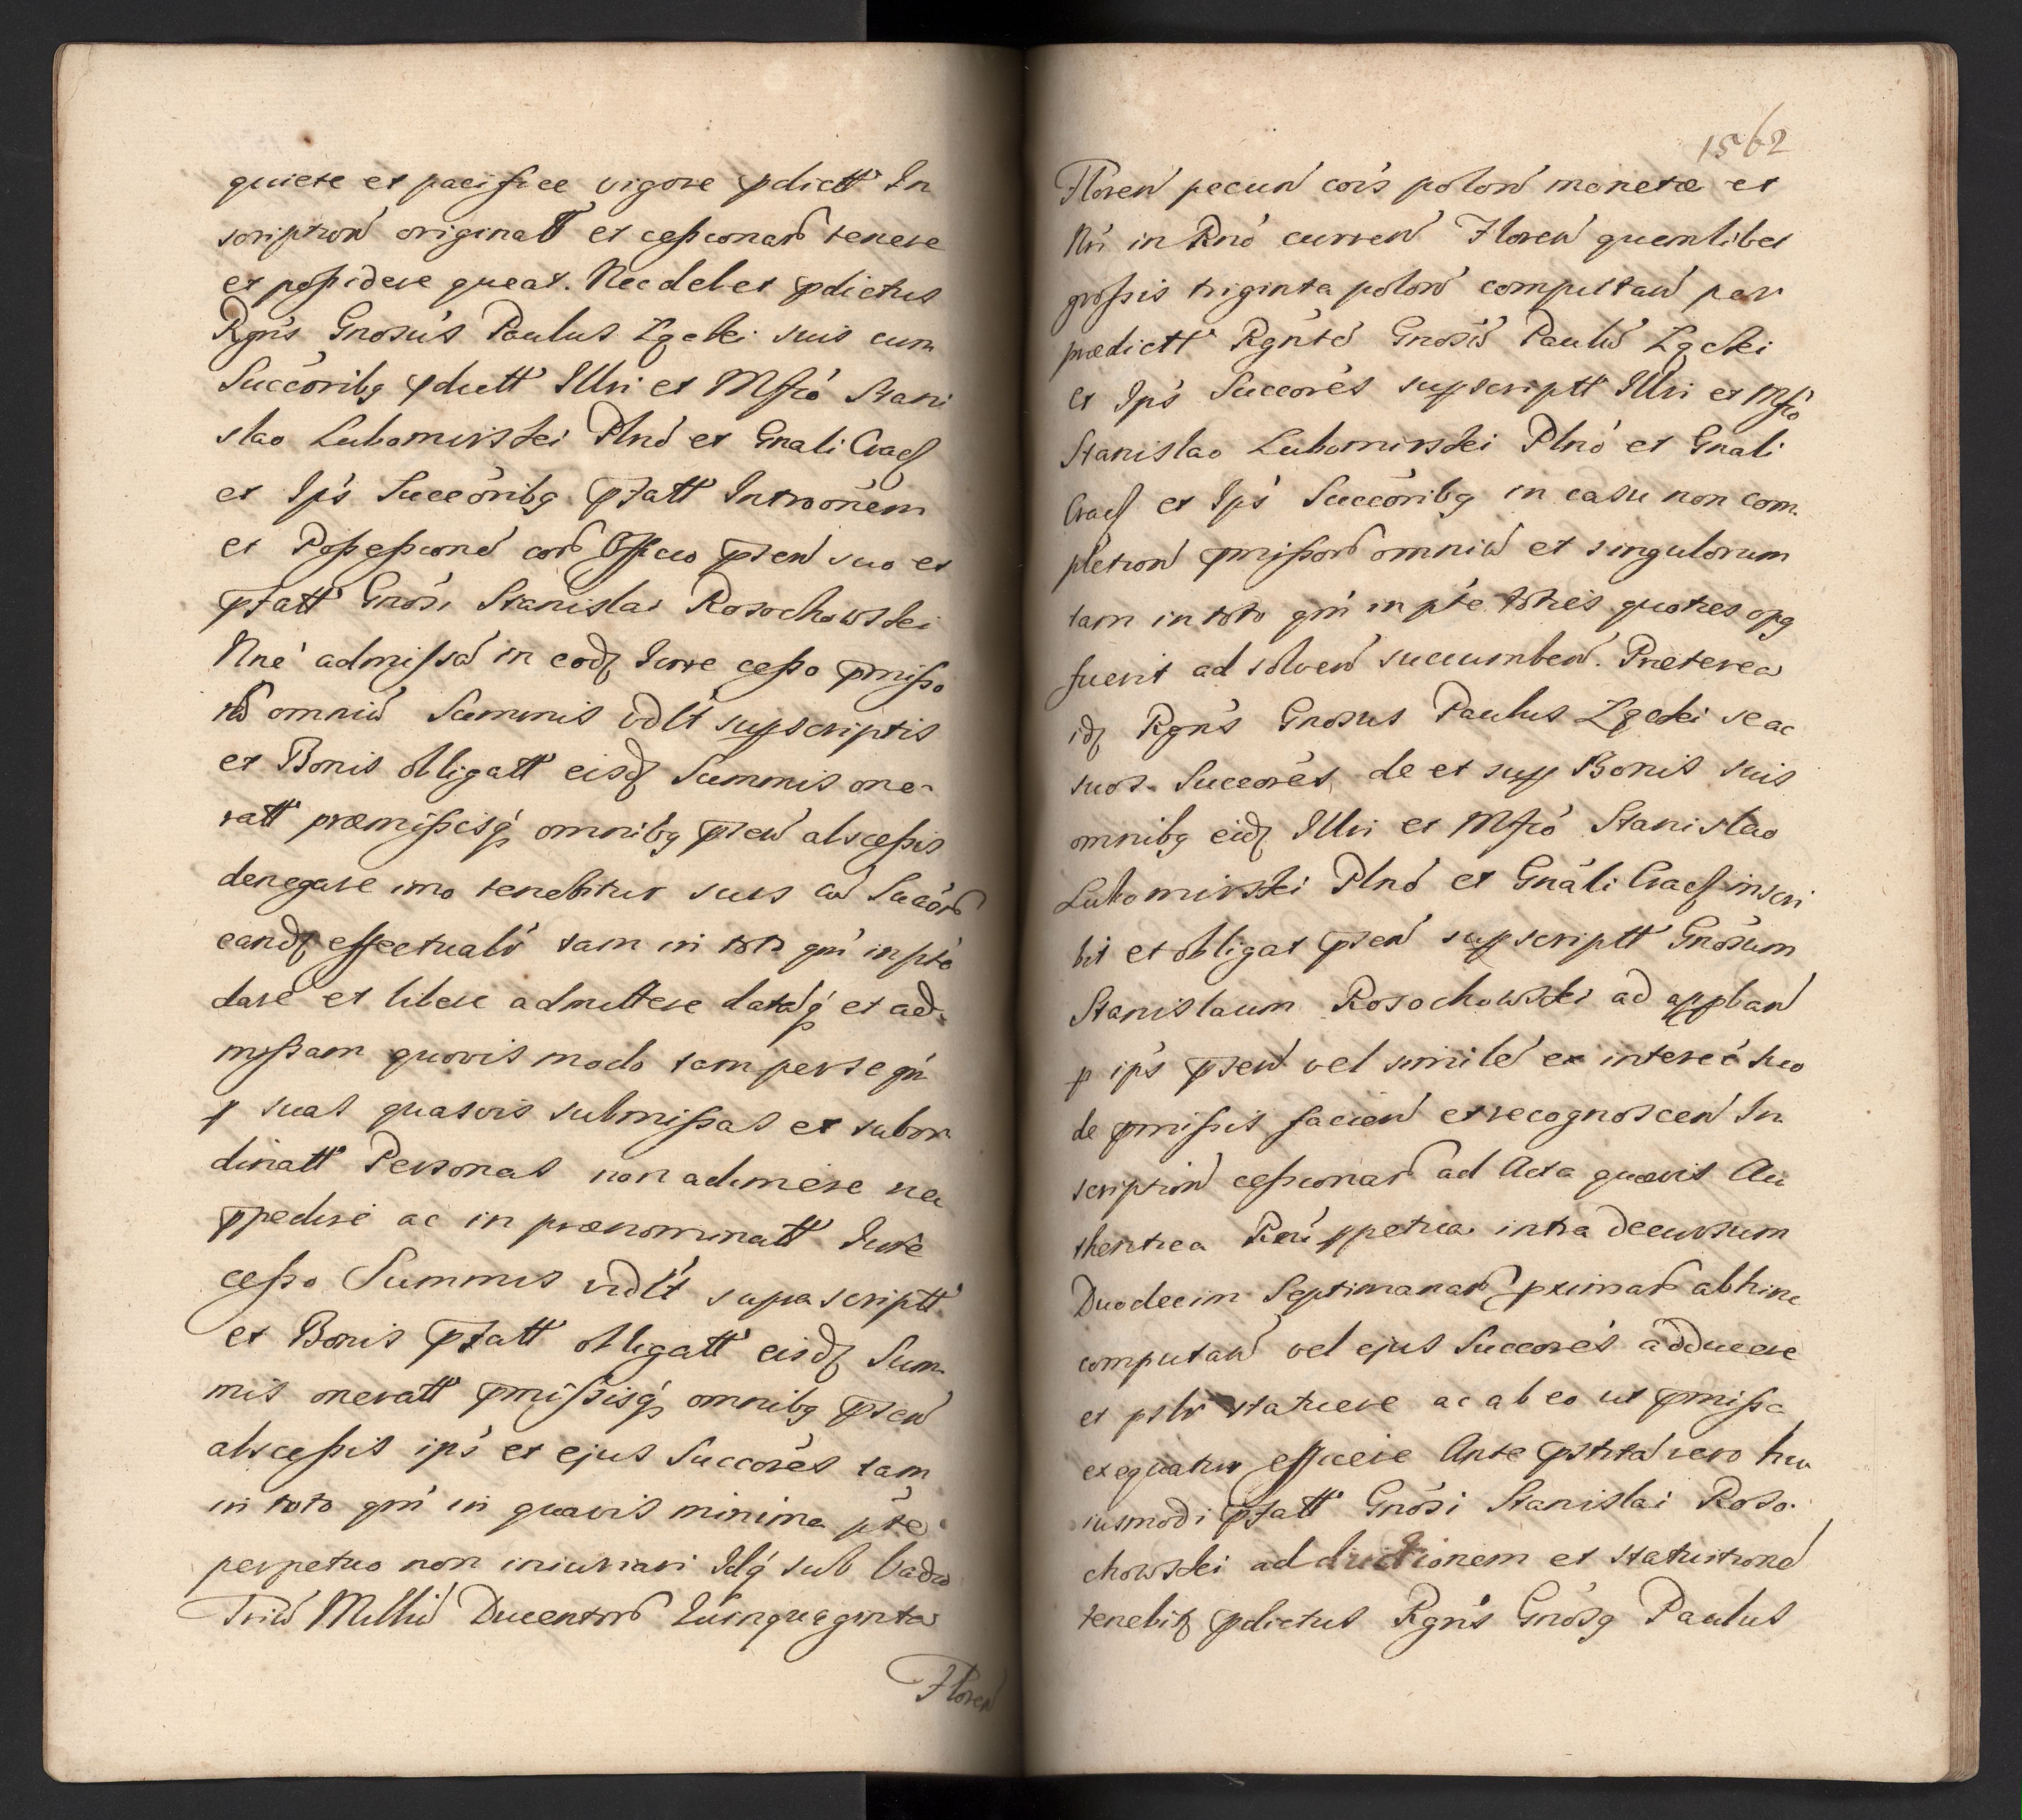 quiete et pacifice vigore pdictt In
scription originatt et cessionar tenere
et possidere queat. Nec debet pdictus
Rgns Gnosus Paulus Zgcki suis cum
Succoribg pductt Illri et Mfco Stani
slao Lubomirski Plno et Gnali Crac
et Ips Succoribg pfatt Introonem
et Possessione cor Officio pten suo et
pfatt Gnosi Stanislai Rosochowski
Nne admissa in eodz Iure cesso pmisso
ru omniu Summis vdlt suppscriptis
et Bonis obligatt eisdz Summis one-
ratt præmissisq omnibg pten abscessis
denegare imo tenebitur suis cu Succor
eandz effectualr tam in toto qm in pte
dare et libere admittere dataq et ad-
missam quovis modo tam per se qm
p suas quasvis submissas et subor
dinatt Personas non adimere nec
ppedire ac in prænominatt Iure
cesso Summis vdlt suprascriptt
et Bonis pfatt obligatt eisdz Sum-
mis oneratt pmissisq omnibg pten
abscessis ips et ejus Succores tam
in toto qm in quavis minima pte
perpetuo non iniuriari Idq sub Vadio
Triu Milliu Ducentor Quinquaginta
Floren
1562
Floren pecun cois polon monetæ et
Nri in Rno curren Floren quemlibet
grossis triginta polon computan per
prædictt Rgnte Gnosu Paulu Zgcki
et Ips Succores suppscriptt Illri et Mfco
Stanislao Lubomirski Plno et Gnali
Crac et Ips Succoribg in casu non com-
pletion pmissor omniu et singulorum
tam in toto qm in pte toties quoties opg
fuerit ad solven succumben. Præterea
idz Rgns Gnosus Paulus Zgcki se ac
suos Succores de et supp Bonis suis
omnibg eidz Illri et Mfco Stanislao
Lubomirski Plno et Gnali Crac inscri
bit et obligat pten suppscriptt Gnosum
Stanislaum Rosochowski ad approban
p ips pten vel simile ex interee suo
de pmissis facien et recognoscen In
scription cessionar ad Acta quævis Au
thentica Rni ppetua intra decursum
Duodecim Septimanar pximar abhinc
computan vel ejus Succores adducere
et pstr statuere ac ab eo ut pmissa
exequatur efficere Ante pstita vero hu
iusmodi pfatt Gnosi Stanislai Roso-
chowski adductionem et statuitione
tenebitz pdictus Rgns Gnosg Paulus